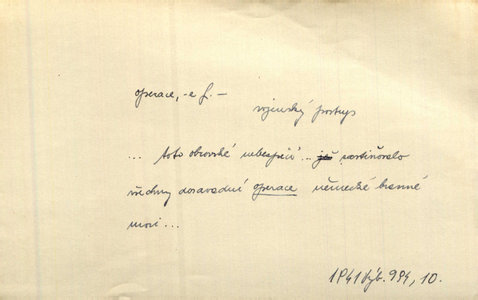 operace, -e f. -
vojenský postup
... toto obrovské nebezpečí ... zastiňovalo
všechny doavadní operace německé branné
moci ...
1941 Výb. 994, 10.